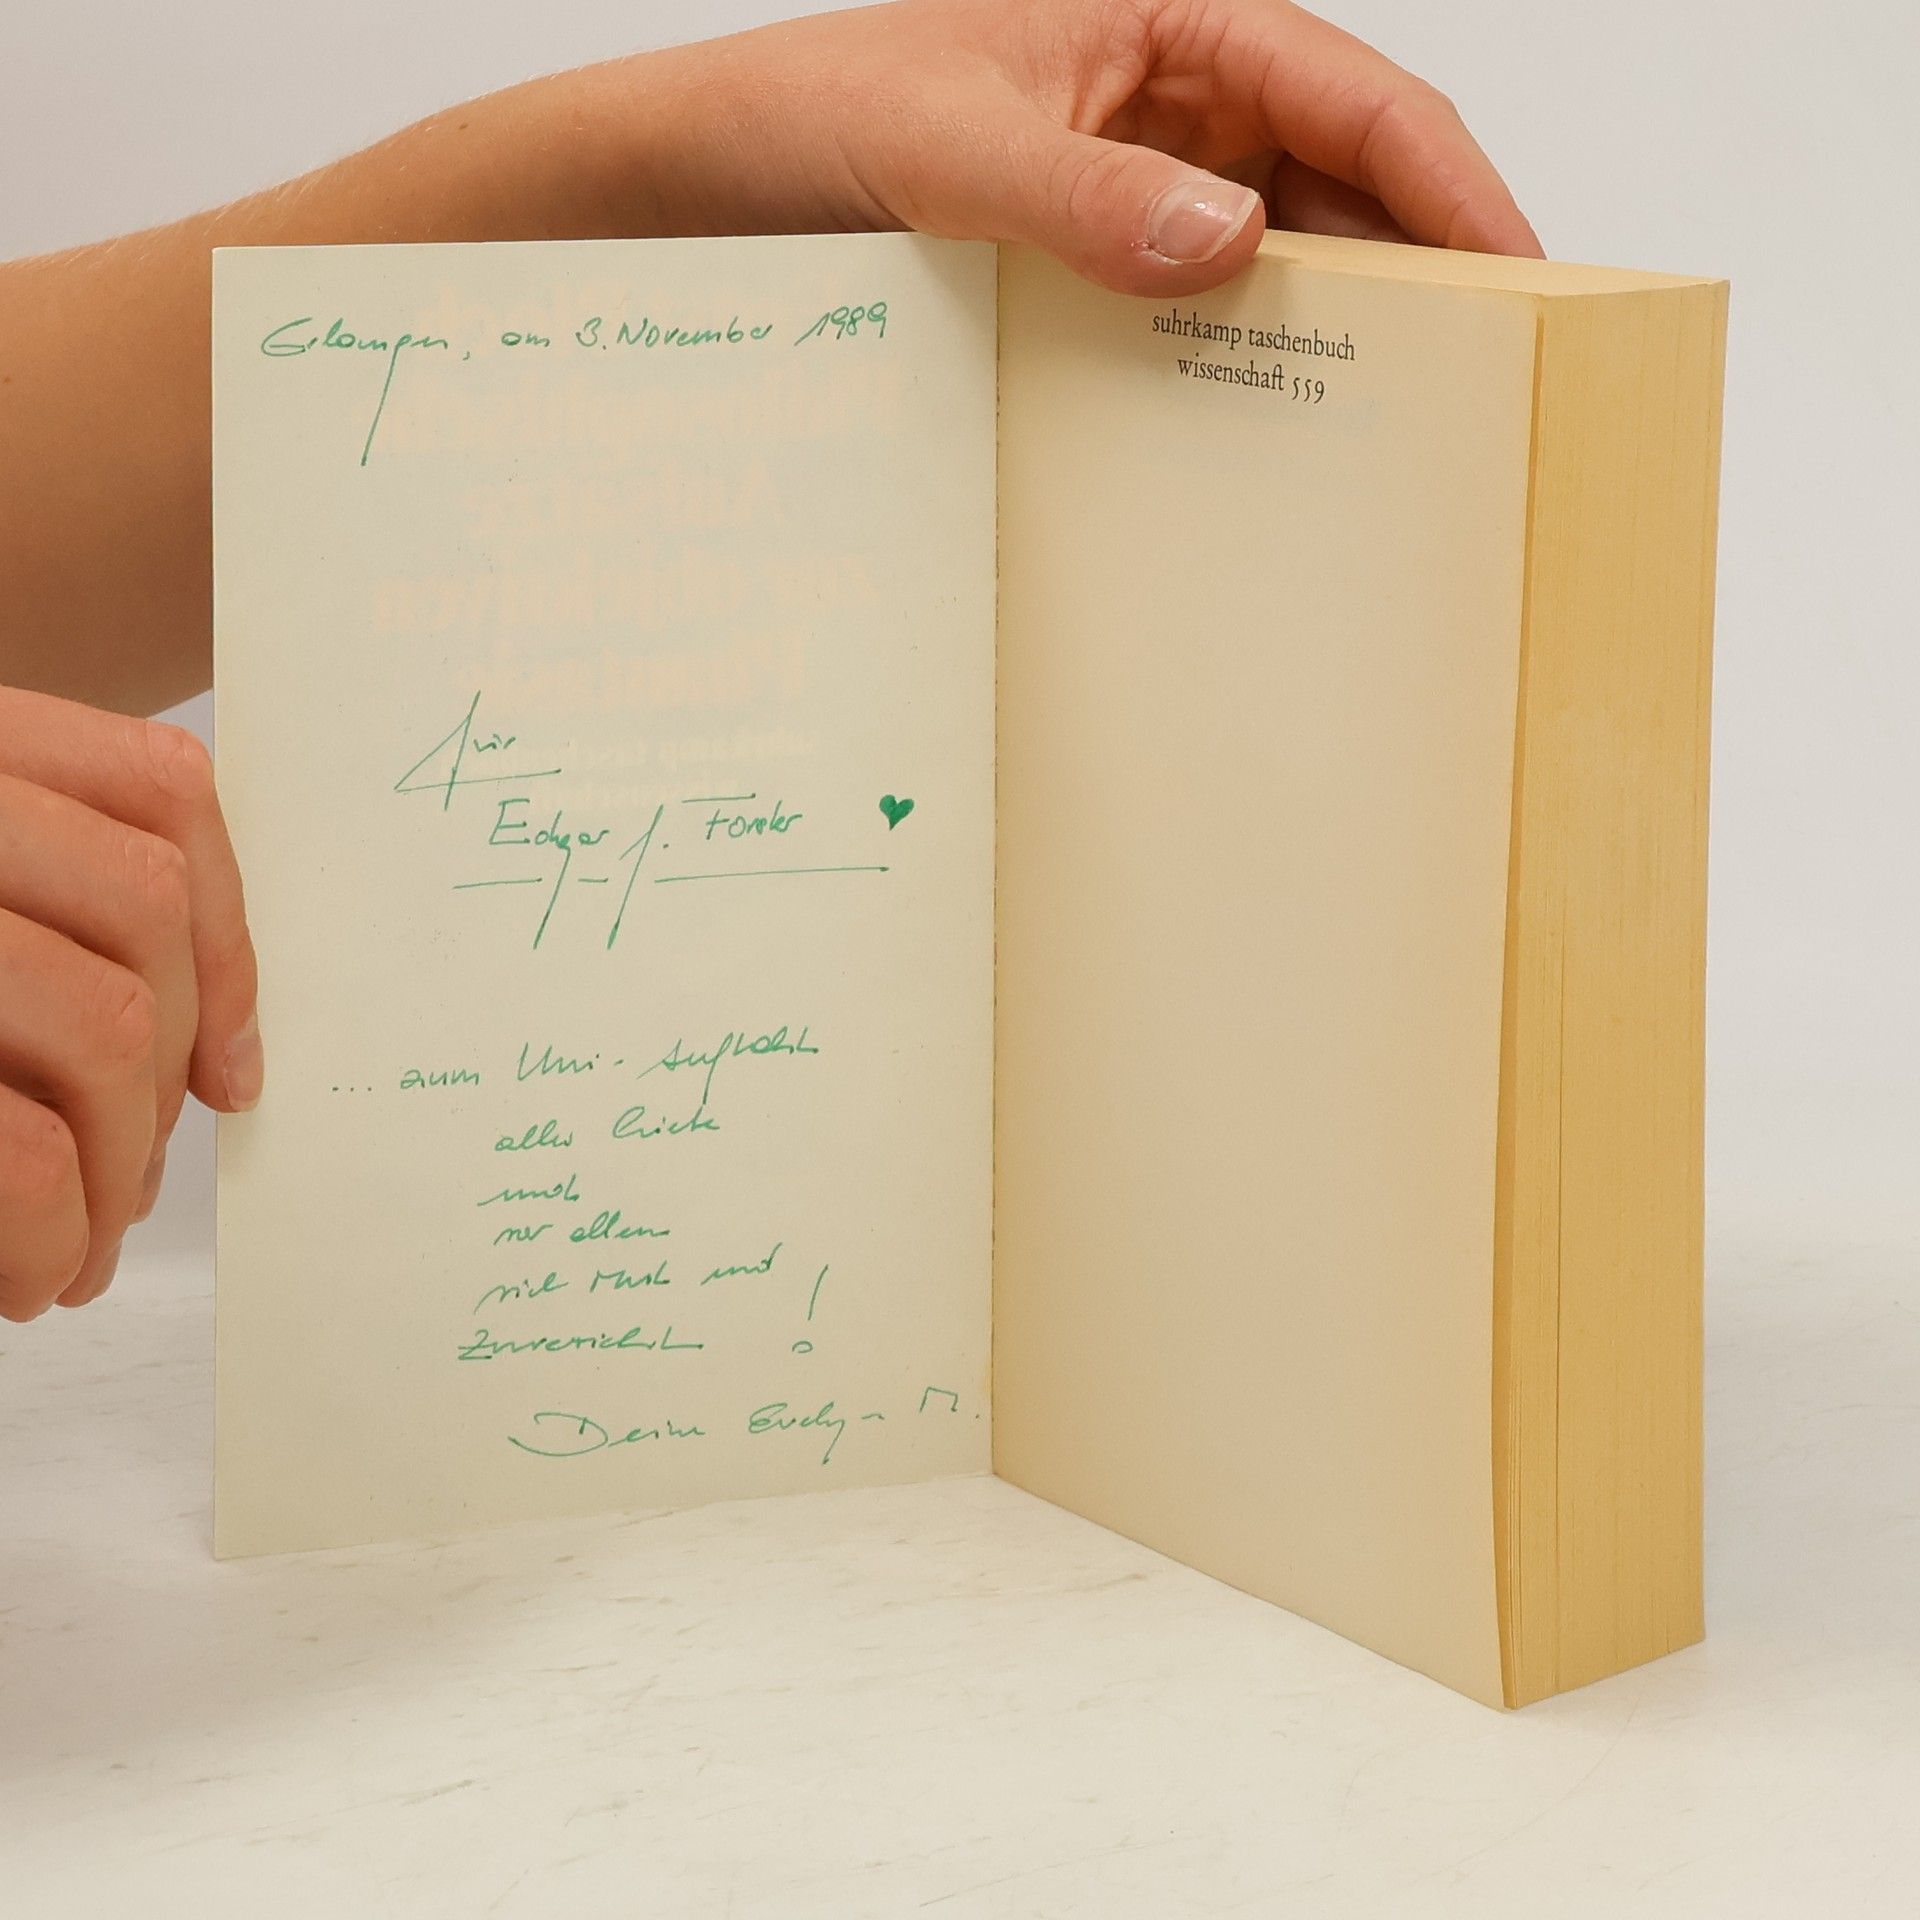 Erlangen, am 3. November 1989
für
Edgar J. Forster
... zum Uni-Auftakt
alles Liebe
und
vor allem
viel Mut und
Zuversicht !
Deine Evelyn M.
suhrkamp taschenbuch
wissenschaft 559